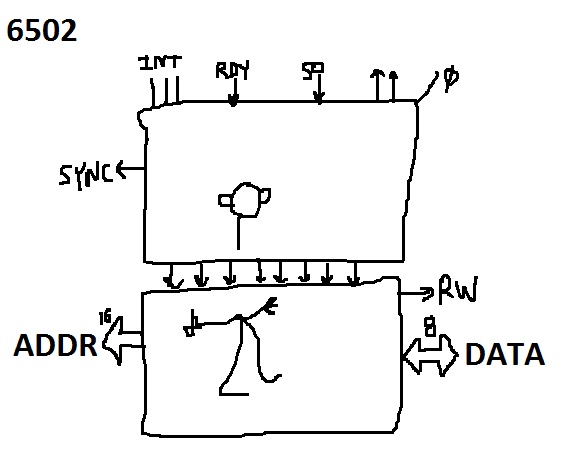 6502
INT RDY SO Ø
SYNC
RW
16 8
ADDR DATA